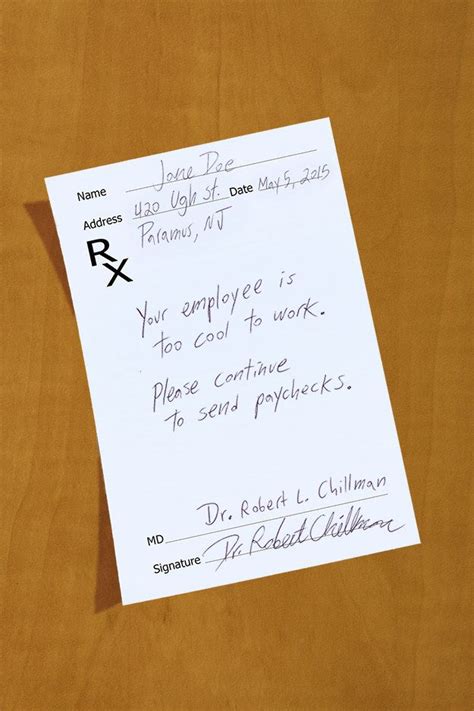 Name Jane Doe
Address 420 Ugh St. Date May 5, 2015
Paramus, NJ
Rx
Your employee is
too cool to work.
Please continue
to send paychecks.
Dr. Robert L. Chillman
MD
Signature Dr. Robert Chillman